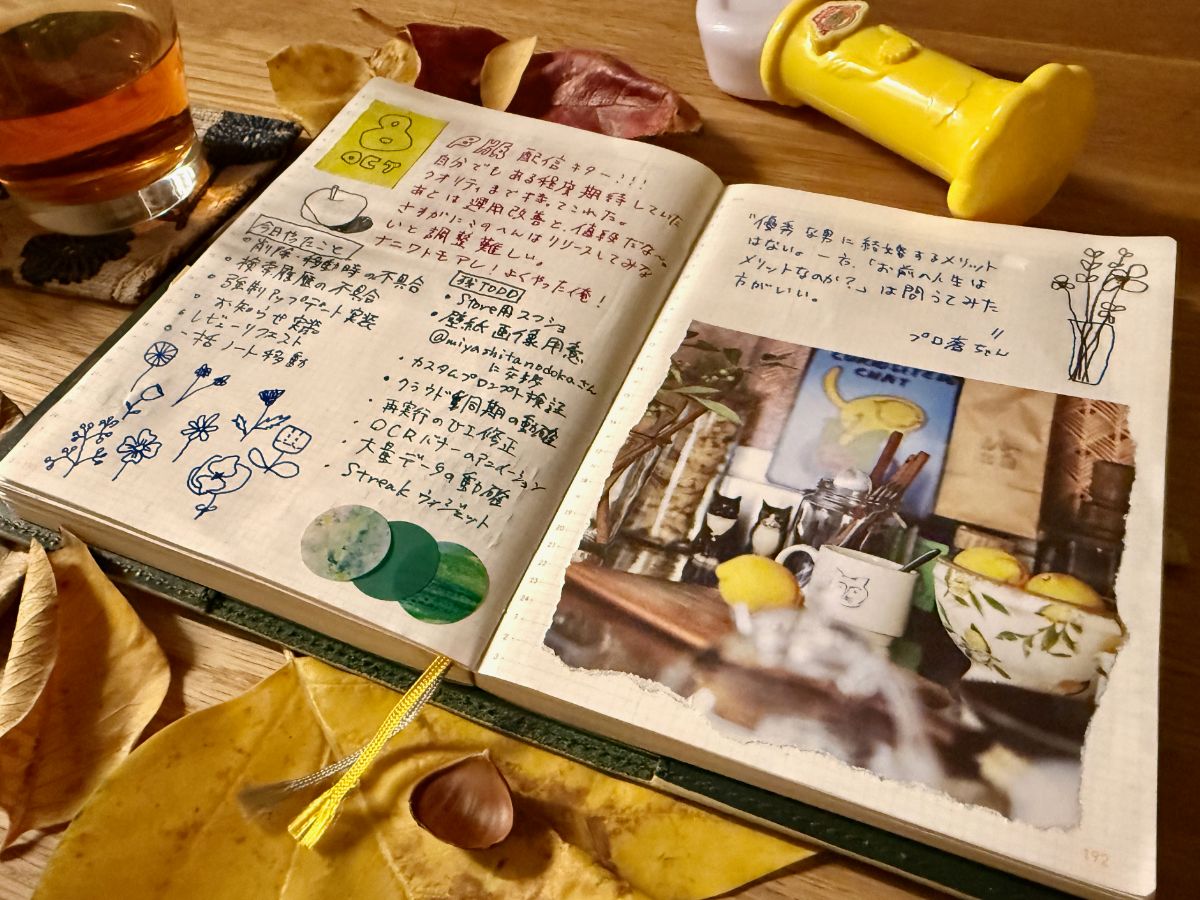 8
OCT
β版 配信キター!!!
自分でもある程度期待していた
クオリティまで持ってこれた。
あとは運用改善と、値段だな〜
さすがにこのへんはリリースしてみな
いと調整難しい。
ナニワトモアレ!よくやった俺!
今日やったこと
• 削除・移動時の不具合
• 検索履歴の不具合
• 強制アップデート実装
• お知らせ実装
• レビューリクエスト
• 一括ノート移動
残TODO
• Store用スクショ
• 壁紙画像用意
@miyashitanodokaさん
に交渉
• カスタムプロンプト検証
• クラウド重同期の動確
• 再実行のUI修正
• OCRバナーのアニメーション
• 大量データの動確
• Streakウィジェット
"優秀な男に結婚するメリット
はない。一方、「お前の人生は
メリットなのか?」は問うてみた
方がいい。
"
プロ奢ちゃん
CHAT
192